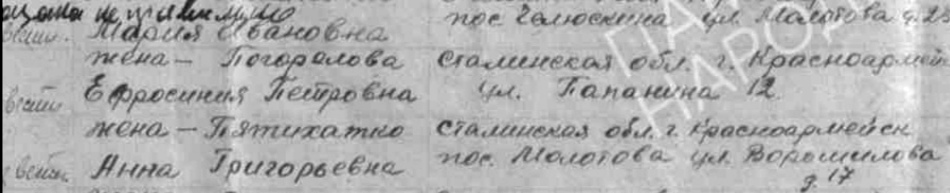 пос. Челюскина ул. Молотова д. 2
Мария Ивановна
жена – Погорелова Сталинская обл. г. Красноармей
Ефросиния Петровна ул. Папанина 12
жена – Пятихатко Сталинская обл. г. Красноармейск
Анна Григорьевна пос. Молотова ул. Ворошилова
д. 17
НАРОД